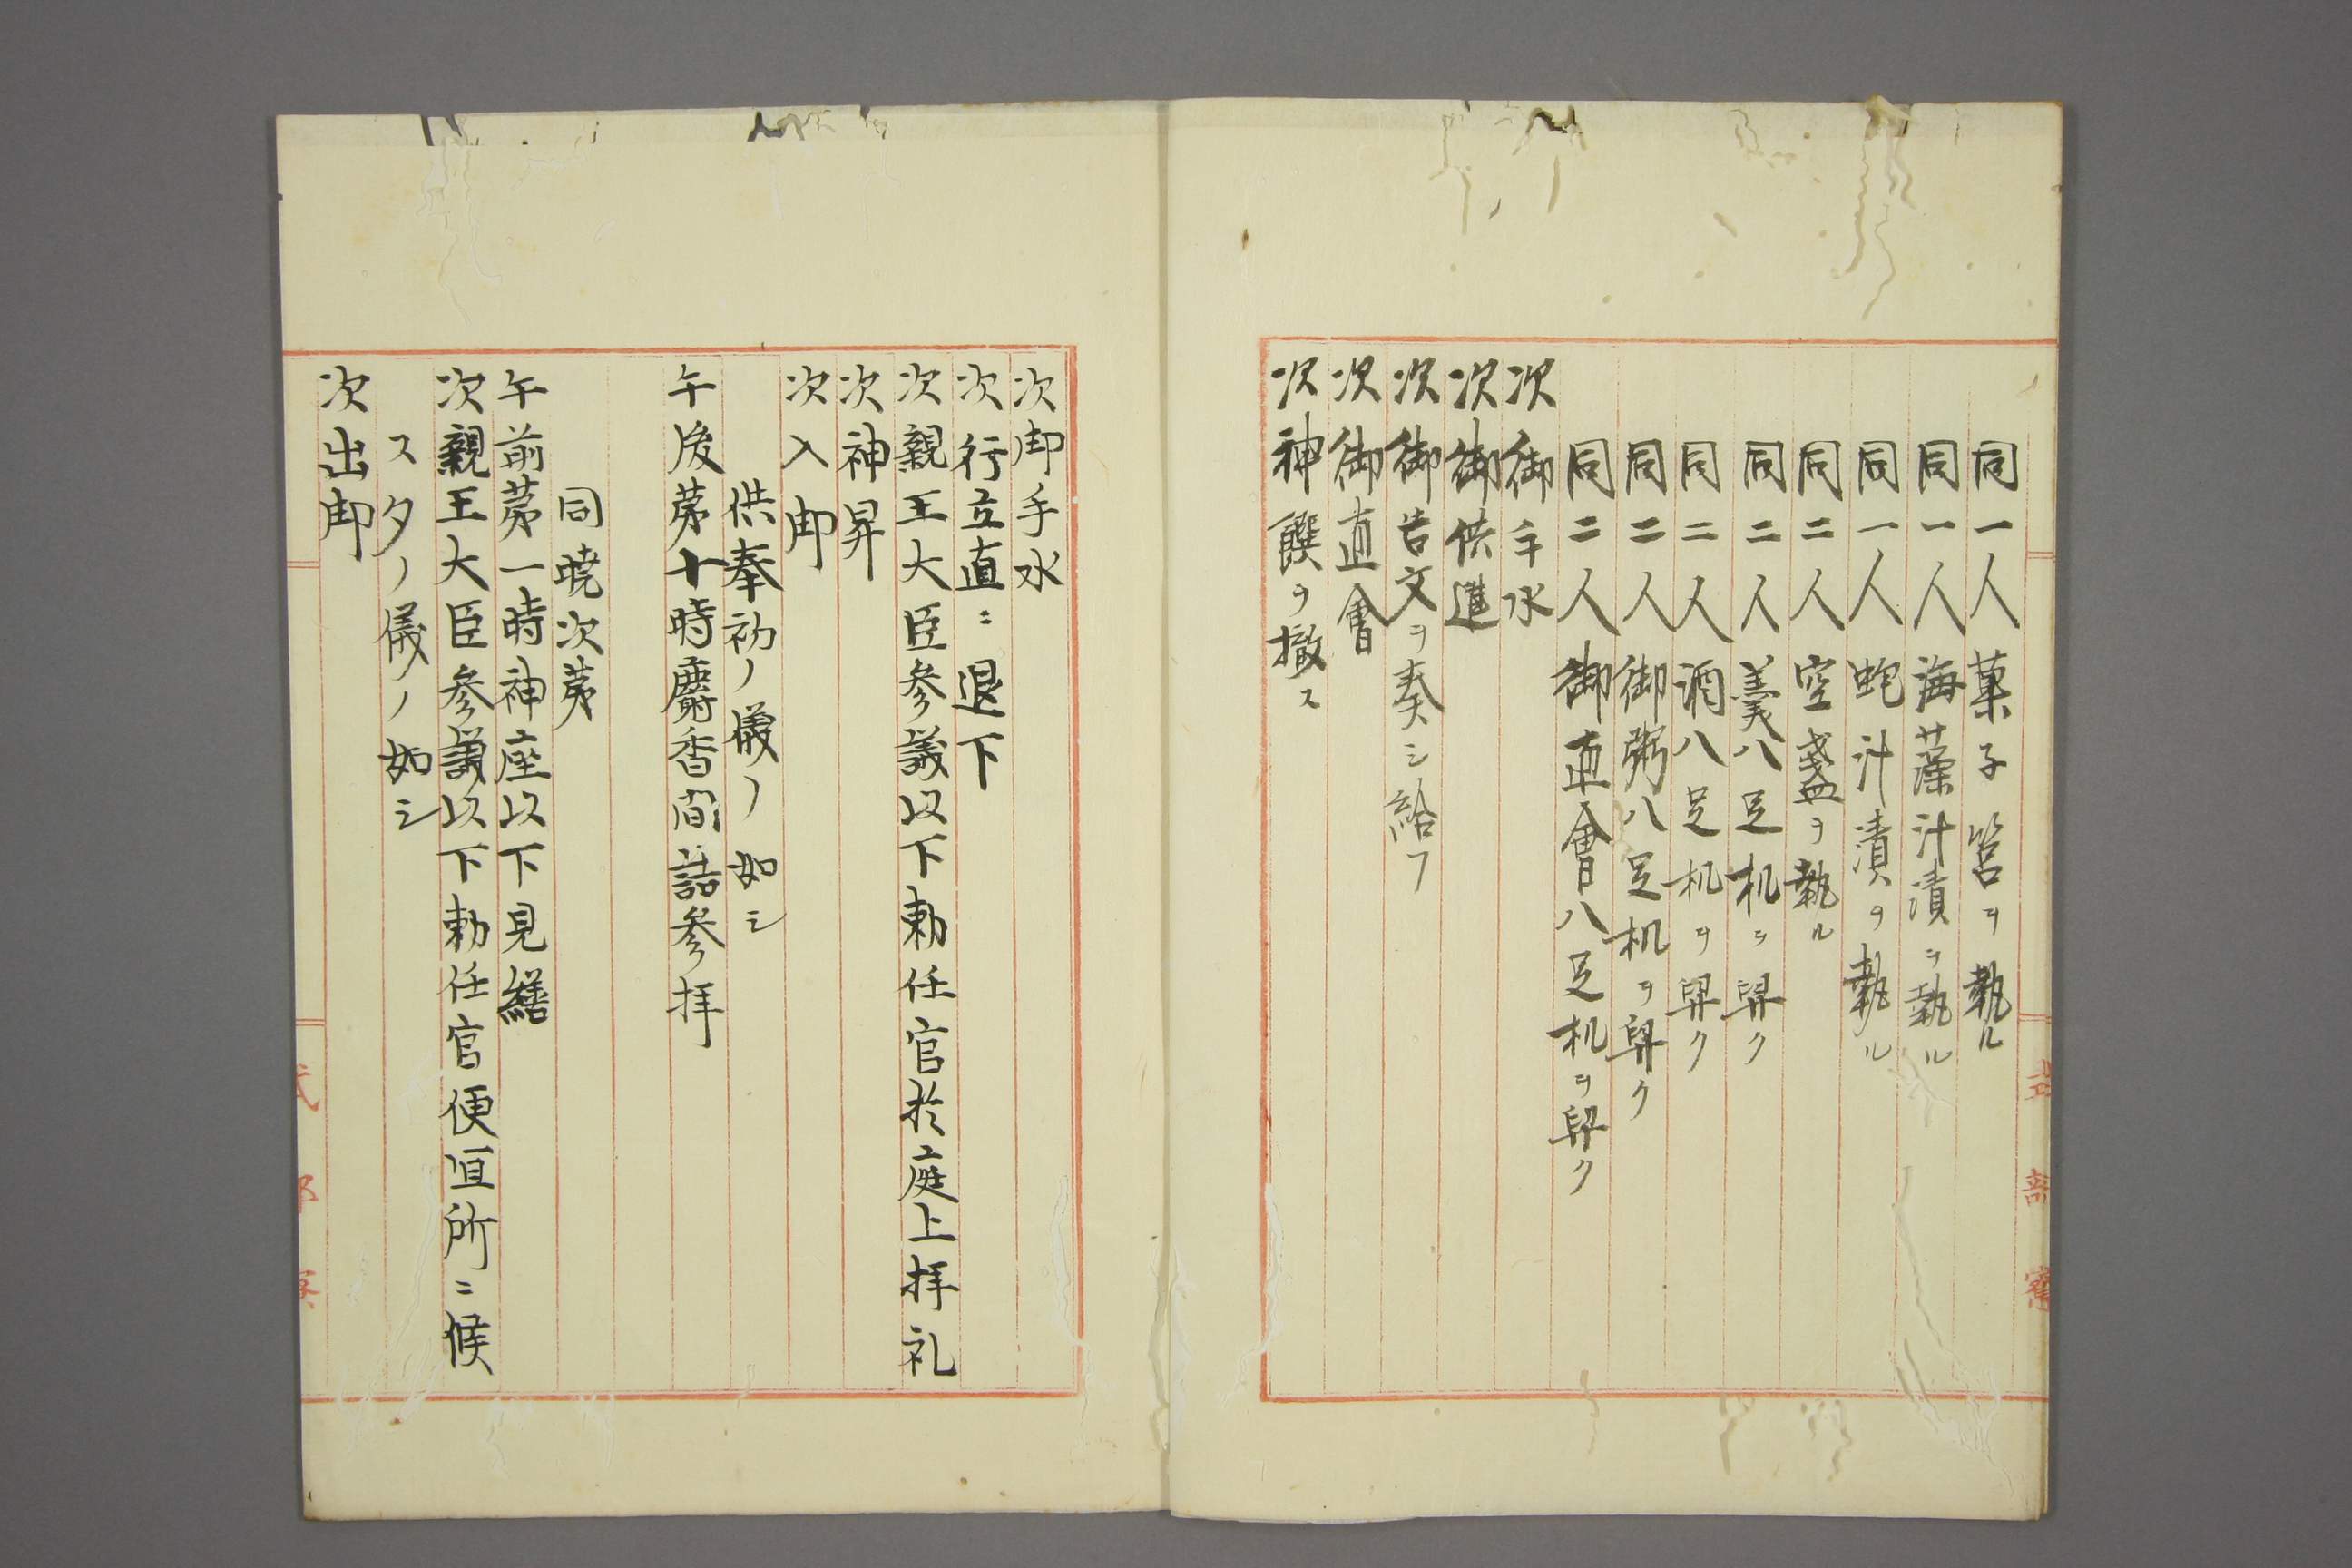 同一人菓子筥ヲ執ル
同一人海藻汁漬ヲ執ル
同一人蚫汁漬ヲ執ル
同二人空盞ヲ執ル
同二人羹八足机ヲ舁ク
同二人酒八足机ヲ舁ク
同二人御粥八足机ヲ舁ク
同二人御直會八足机ヲ舁ク
次御手水
次御供進
次御告文ヲ奏シ給フ
次御直會
次神饌ヲ撤ス
次御手水
次行立直ニ退下
次親王大臣参議以下勅任官於庭上拝礼
次神昇
次入御
供奉初ノ儀ノ如シ
午後苐十時麝香間詣参拝
同曉次苐
午前苐一時神座以下見繕
次親王大臣参議以下勅任官便宜所ニ候
スタノ儀ノ如シ
次出御